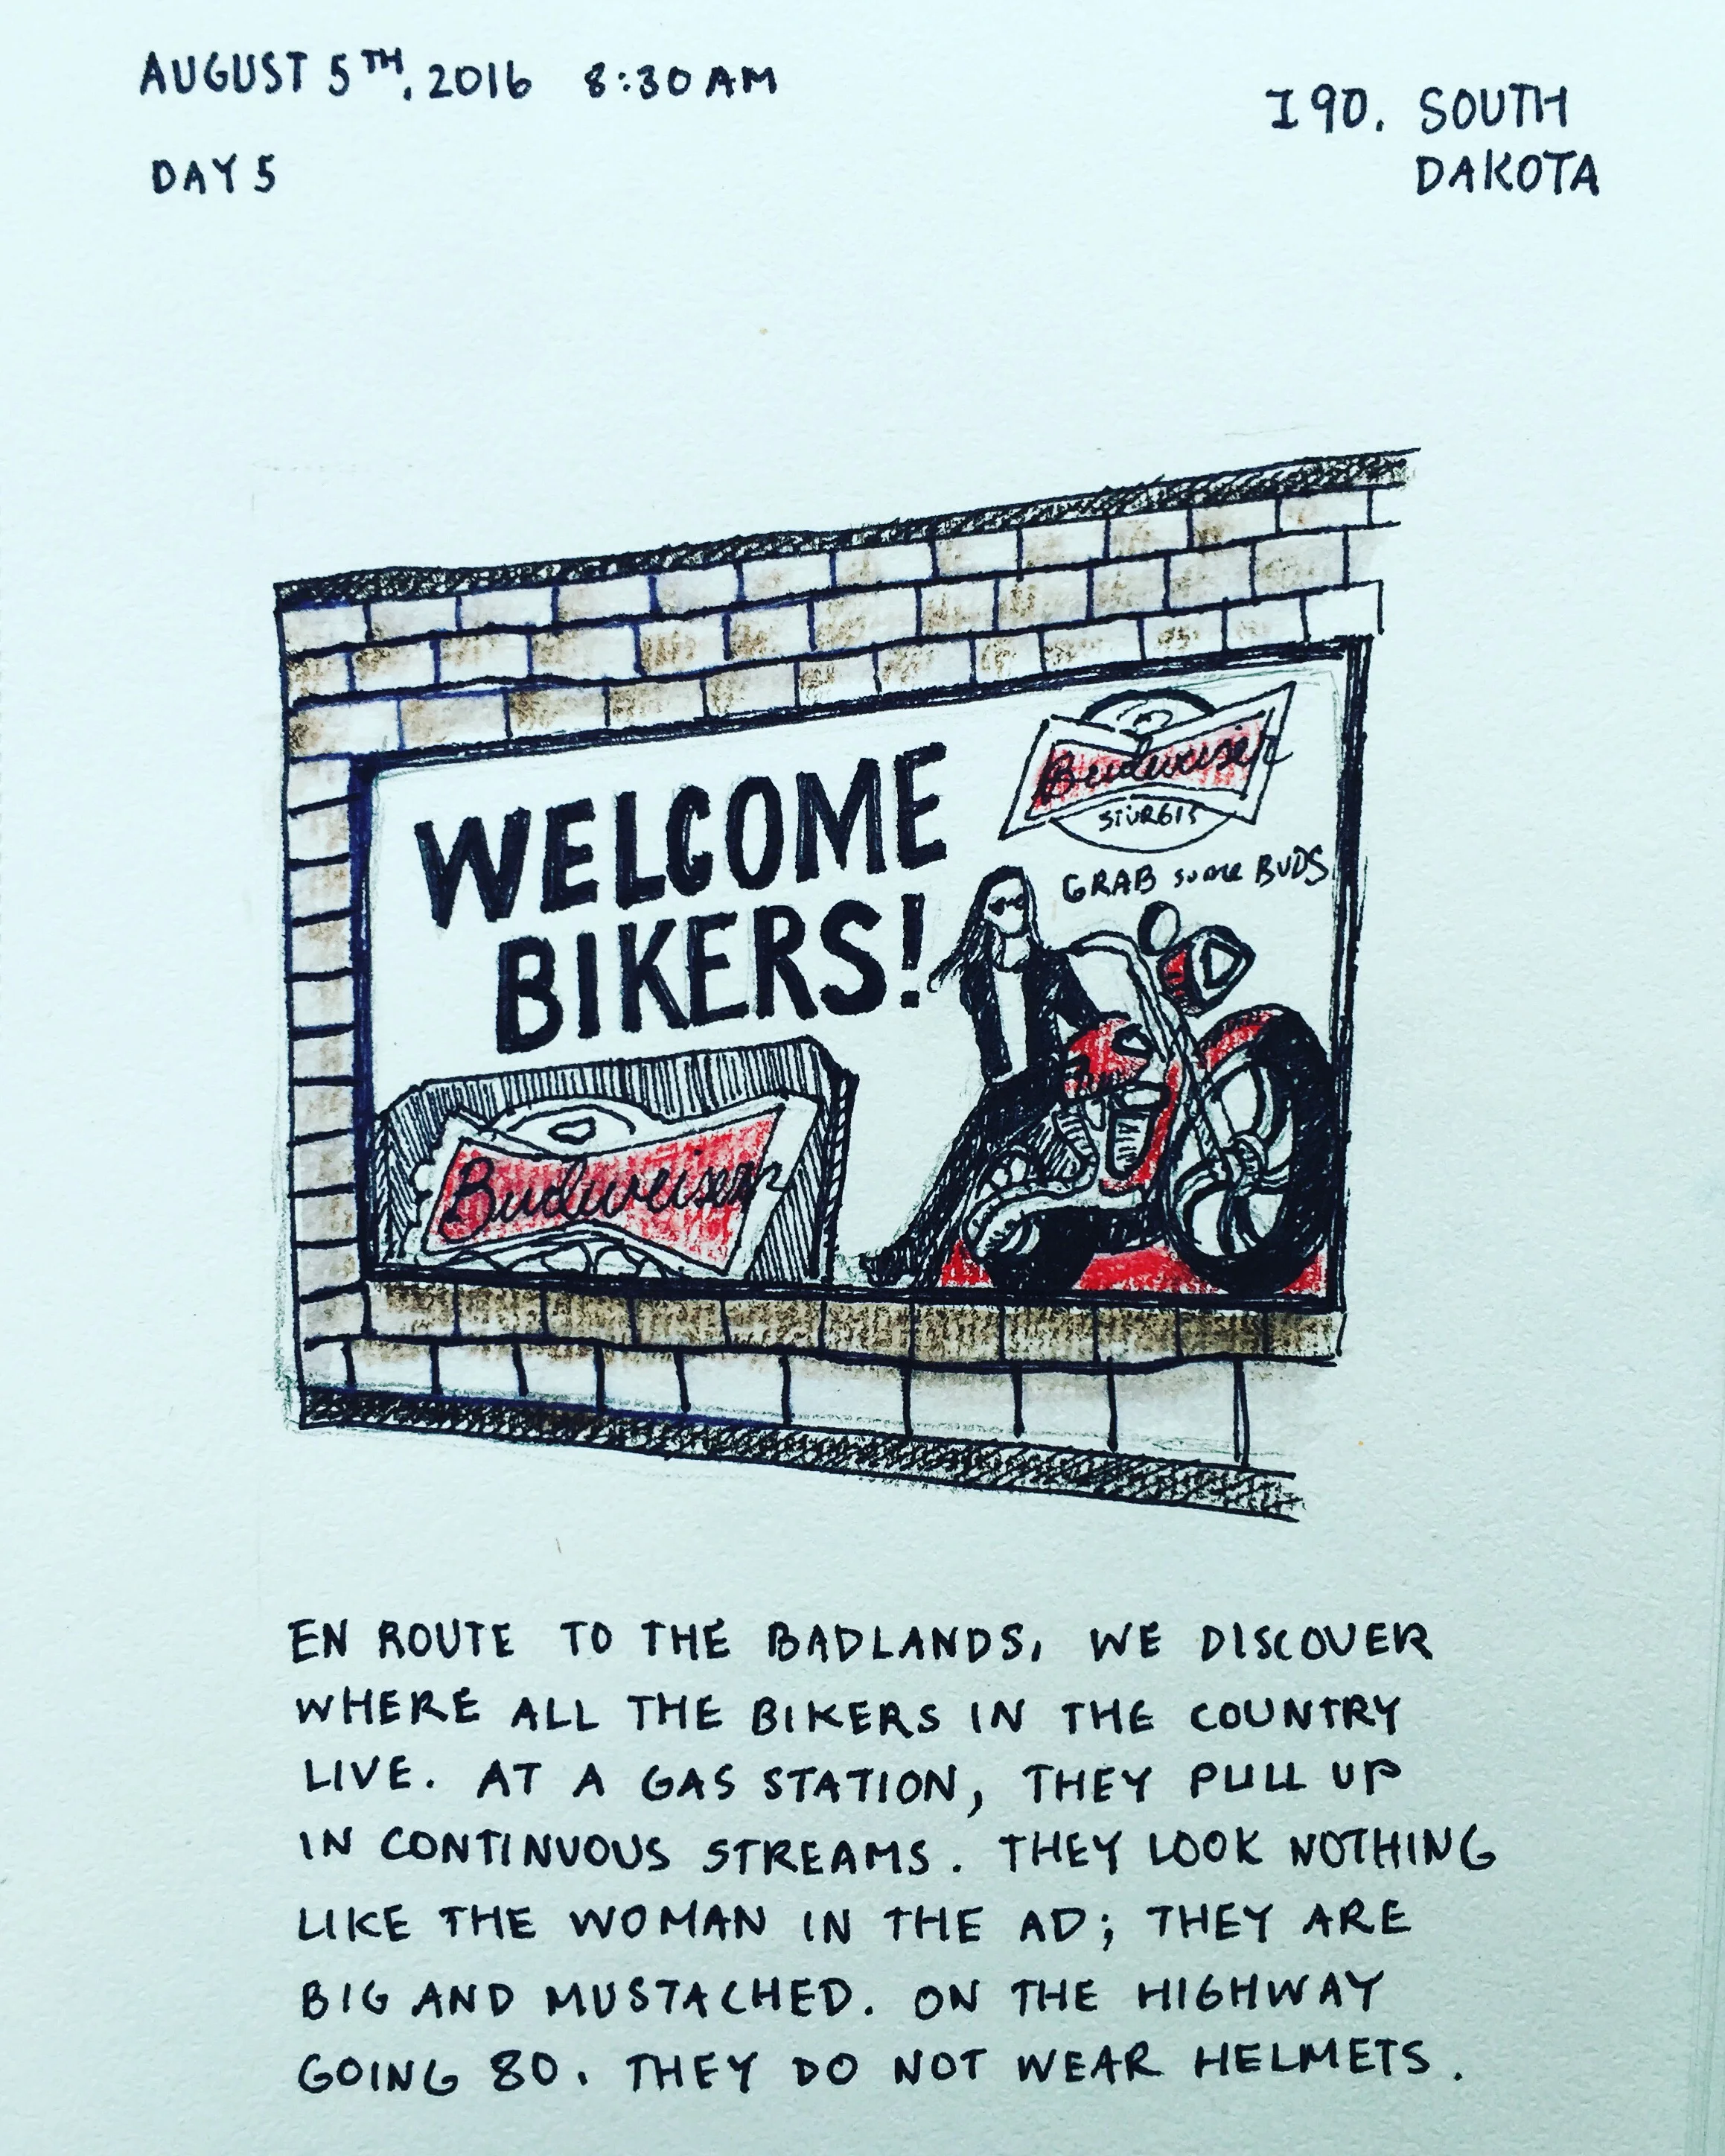 AUGUST 5TH, 2016 8:30 AM
DAY 5
I90. SOUTH
DAKOTA
WELCOME
BIKERS!
Budweiser
STURGIS
GRAB SOME BUDS
Budweiser
EN ROUTE TO THE BADLANDS, WE DISCOVER
WHERE ALL THE BIKERS IN THE COUNTRY
LIVE. AT A GAS STATION, THEY PULL UP
IN CONTINUOUS STREAMS. THEY LOOK NOTHING
LIKE THE WOMAN IN THE AD; THEY ARE
BIG AND MUSTACHED. ON THE HIGHWAY
GOING 80. THEY DO NOT WEAR HELMETS.